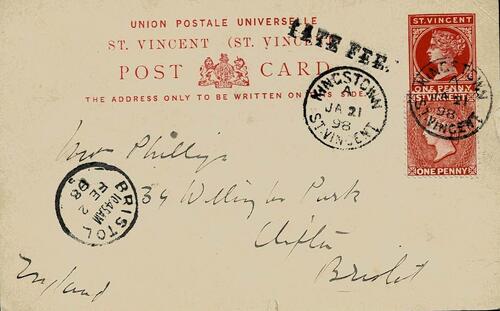 UNION POSTALE UNIVERSELLE
ST. VINCENT (ST. VINCENT
POST CARD
THE ADDRESS ONLY TO BE WRITTEN ON THIS SIDE
LATE FEE.
ST. VINCENT
ONE PENNY
ST VINCENT
ONE PENNY
KINGSTOWN
A
JA 21
98
ST. VINCENT
KINGSTOWN
JA 21
98
ST. VINCENT
Phillips
34 Wellington Park
Clifton
Bristol
England
BRISTOL
10.45AM
FE 2
98